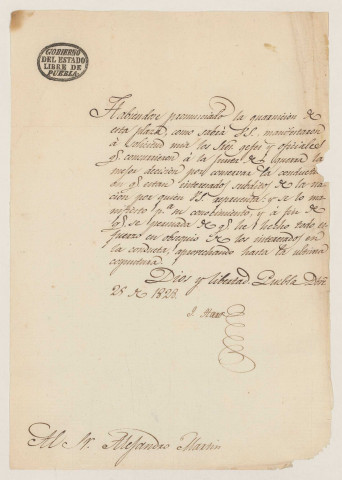 GOBIERNO
DEL ESTADO
LIBRE DE
PUEBLA.
Habiendose pronunciado la guarnicion de
esta plaza, como sabrá V.S. manifestaron
á solicitud mia los Sres gefes y oficiales
q. concurrieron á la junta de la
mejor decision por conservar la conducta
en q. estan interesados subditos de la na-
cion por quien V.S. representa; y se lo ma-
nifiesto pa. su conocimiento, y á fin de
q. se persuada de q. he hecho todo es-
fuerzo en obsequio de los interesados en
la conducta, aprovechando hasta la ultima
coyuntura.
Dios y libertad. Puebla Dbre.
25 de 1828.
J.
Al Sr. Alejandro Martin